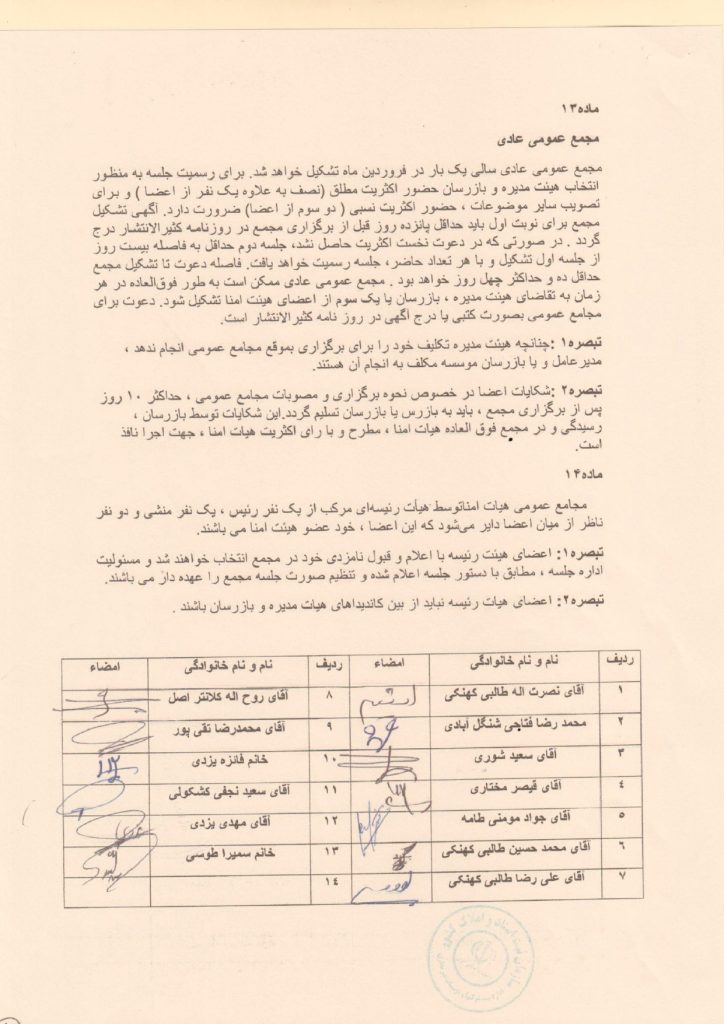 ماده۱۳
مجمع عمومی عادی
مجمع عمومی عادی سالی یک بار در فروردین ماه تشکیل خواهد شد. برای رسمیت جلسه به منظور
انتخاب هیئت مدیره و بازرسان حضور اکثریت مطلق (نصف به علاوه یک نفر از اعضا ) و برای
تصویب سایر موضوعات ، حضور اکثریت نسبی ( دو سوم از اعضا) ضرورت دارد. آگهی تشکیل
مجمع برای نوبت اول باید حداقل پانزده روز قبل از برگزاری مجمع در روزنامه کثیرالانتشار درج
گردد . در صورتی که در دعوت نخست اکثریت حاصل نشد، جلسه دوم حداقل به فاصله بیست روز
از جلسه اول تشکیل و با هر تعداد حاضر، جلسه رسمیت خواهد یافت. فاصله دعوت تا تشکیل مجمع
حداقل ده و حداکثر چهل روز خواهد بود . مجمع عمومی عادی ممکن است به طور فوق‌العاده در هر
زمان به تقاضای هیئت مدیره ، بازرسان یا یک سوم از اعضای هیئت امنا تشکیل شود. دعوت برای
مجامع عمومی بصورت کتبی یا درج آگهی در روز نامه کثیرالانتشار است.
تبصره۱ :چنانچه هیئت مدیره تکلیف خود را برای برگزاری بموقع مجامع عمومی انجام ندهد ،
مدیرعامل و یا بازرسان موسسه مکلف به انجام آن هستند.
تبصره۲ :شکایات اعضا در خصوص نحوه برگزاری و مصوبات مجامع عمومی ، حداکثر ۱۰ روز
پس از برگزاری مجمع ، باید به بازرس یا بازرسان تسلیم گردد.این شکایات توسط بازرسان ،
رسیدگی و در مجمع فوق العاده هیات امنا ، مطرح و با رای اکثریت هیات امنا ، جهت اجرا نافذ
است.
ماده۱۴
مجامع عمومی هیات امناتوسط هیأت رئیسه‌ای مرکب از یک نفر رئیس ، یک نفر منشی و دو نفر
ناظر از میان اعضا دایر می‌شود که این اعضا ، خود عضو هیئت امنا می باشند.
تبصره۱: اعضای هیئت رئیسه با اعلام و قبول نامزدی خود در مجمع انتخاب خواهند شد و مسئولیت
اداره جلسه ، مطابق با دستور جلسه اعلام شده و تنظیم صورت جلسه مجمع را عهده دار می باشند.
تبصره۲: اعضای هیات رئیسه نباید از بین کاندیداهای هیات مدیره و بازرسان باشند .
ردیف نام و نام خانوادگی امضاء ردیف نام و نام خانوادگی امضاء
۱ آقای نصرت اله طالبی کهنکی ۸ آقای روح اله کلانتر اصل
۲ محمد رضا فتاحی شنگل آبادی ۹ آقای محمدرضا تقی پور
۳ آقای سعید شوری ۱۰ خانم فائزه یزدی
۴ آقای قیصر مختاری ۱۱ آقای سعید نجفی کشکولی
۵ آقای جواد مومنی طامه ۱۲ آقای مهدی یزدی
۶ آقای محمد حسین طالبی کهنکی ۱۳ خانم سمیرا طوسی
۷ آقای علی رضا طالبی کهنکی ۱۴